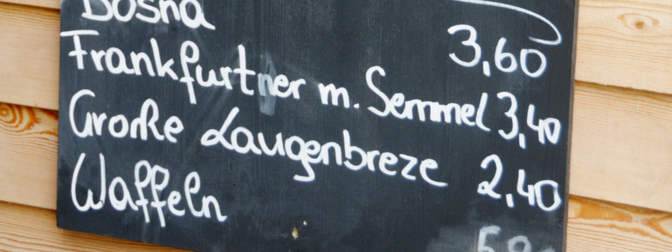 Bosna 3,60
Frankfurtner m. Semmel 3,40
Große Laugenbreze 2,40
Waffeln